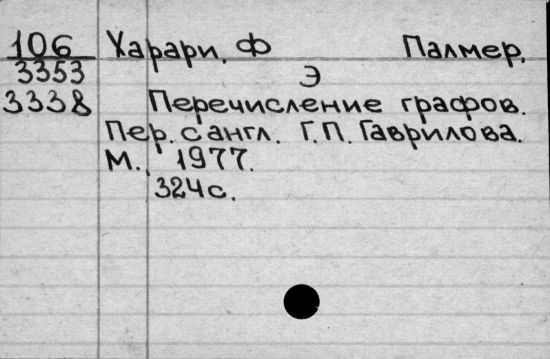 106 Харари, Ф Палмер,
3353 Э
3338 Перечисление графов.
Пер. с англ. Г.П. Гаврилова.
М., 1977.
324с.